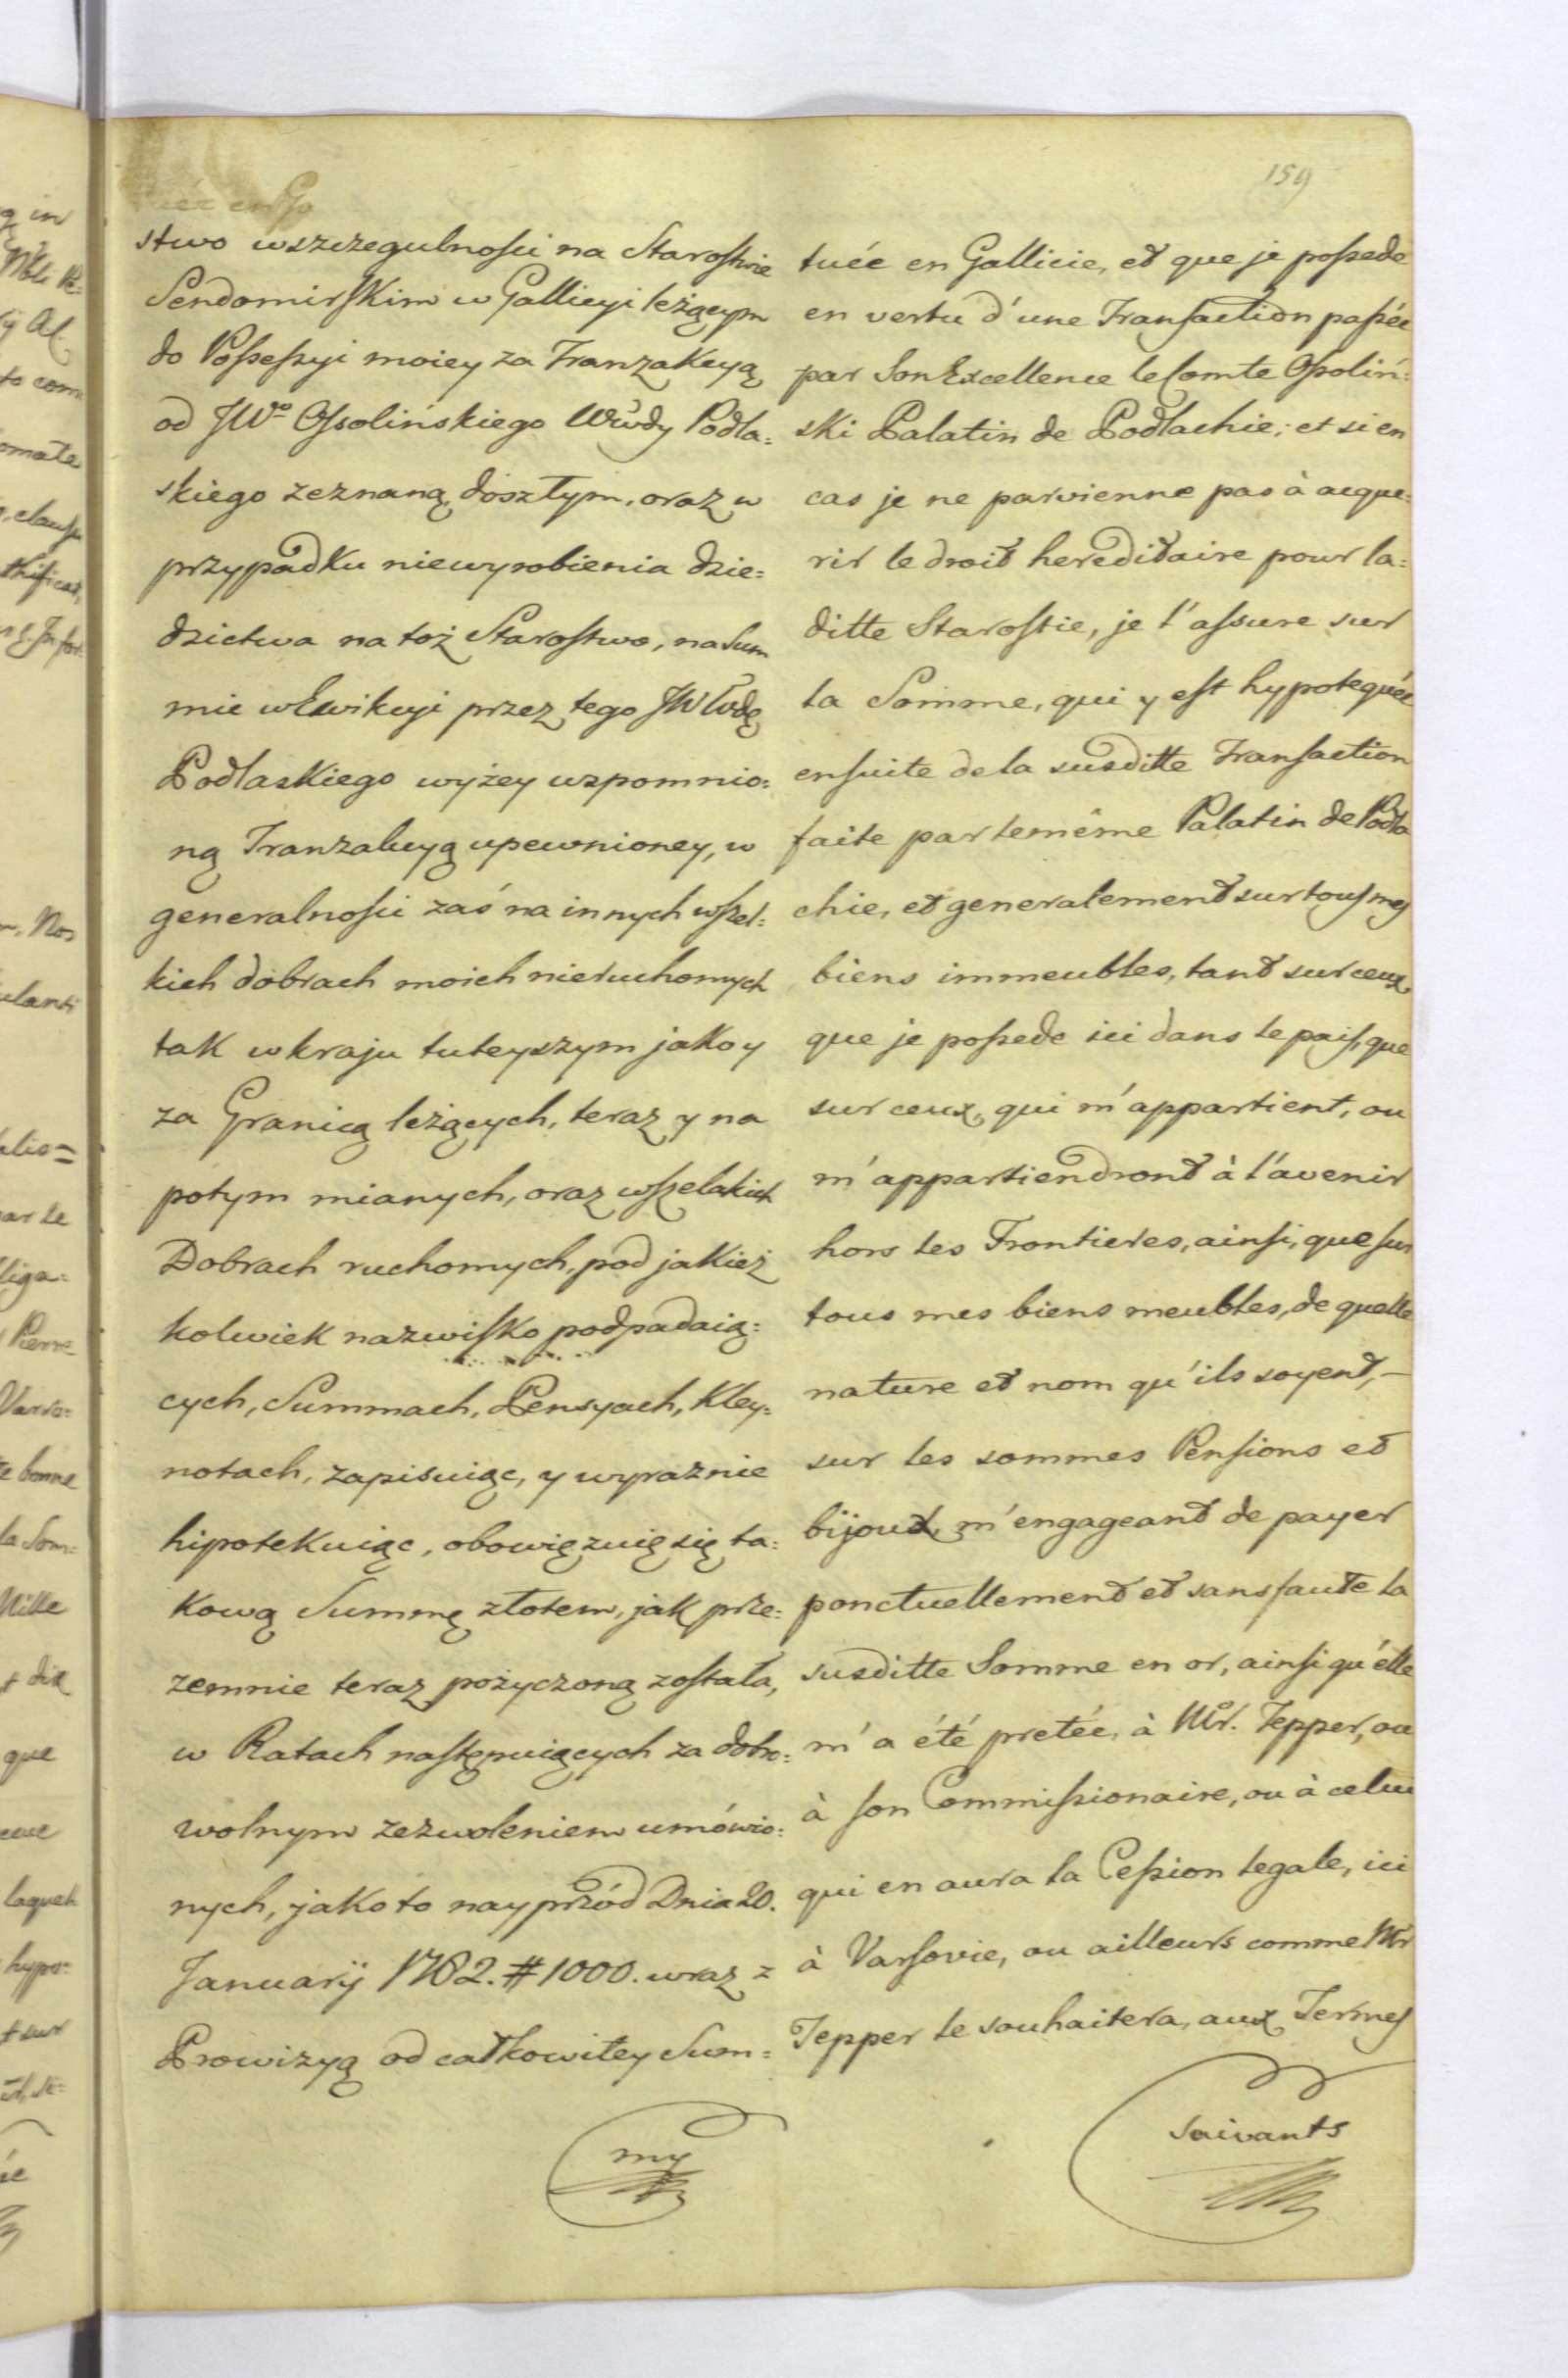 159
stwo wszczegulności na Starostwie
Sendomirskim w Gallicyi leżącym
do Possessyi moiey za Tranzakcyą
od JWo Ossolińskiego Wwdy Podla=
skiego zeznaną doszłym, oraz w
przypadku niewyrobienia dzie=
dzictwa na toż Starostwo, na Sum
mie w Ewikcyi przez tego JW Wdę
Podlaskiego wyżey wspomnio=
ną Tranzakcyą upewnioney, w
generalności zaś na innych wszel=
kich dobrach moich nieruchomych
tak w kraju tuteyszym jako y
za Granicą leżących, teraz y na
potym mianych, oraz wszelakich
Dobrach ruchomych, pod jakież
kolwiek nazwisko podpadaią=
cych, Summach, Pensyach, Kley=
notach, zapisuiąc, y wyraznie
hipotekuiąc, obowięzuię się ta=
kową Summę złotem, jak prze=
zemnie teraz pożyczoną została,
w Ratach następuiących za dobro=
wolnym zezwoleniem umówio=
nych, jako to nayprzód Dnia 20.
Januarij 1782. # 1000. wraz z
Prowizyą od całkowitey Sum=
my
tuée en Gallicie, et que je possede
en vertu d'une Transaction passée
par Son Excellence le Comte Ossoliń=
ski Palatin de Podlachie; et si en
cas je ne parvienne pas à acque=
rir le droit hereditaire pour la=
ditte Starostie, je l'assure sur
la Somme, qui y est hypotequée
ensuite de la susditte Transaction
faite par le même Palatin de Podla
chie, et generalement sur tous mes
biens immeubles, tant sur ceux,
que je possede ici dans le pais, que
sur ceux, qui m'appartient, ou
m'appartiendront à l'avenir
hors les Frontieres, ainsi, que sur
tous mes biens meubles, de quelle
nature et nom qu'ils soyent, –
sur les sommes Pensions et
bijoux, m'engageant de payer
ponctuellement et sans faute la
susditte Somme en or, ainsi qu'elle
m'a été pretée, à Mr. Tepper, ou
à son Commissionaire, ou à celui
qui en aura la Cession legale, ici
à Varsovie, ou ailleurs comme Mr
Tepper le souhaitera, aux Termes
Suivants